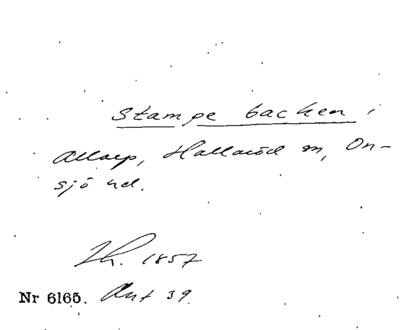 Stampe backen i
Allarp, Hallaröd sn, On-
sjö hd.
Th. 1857
Nr 6165. Ant 39.